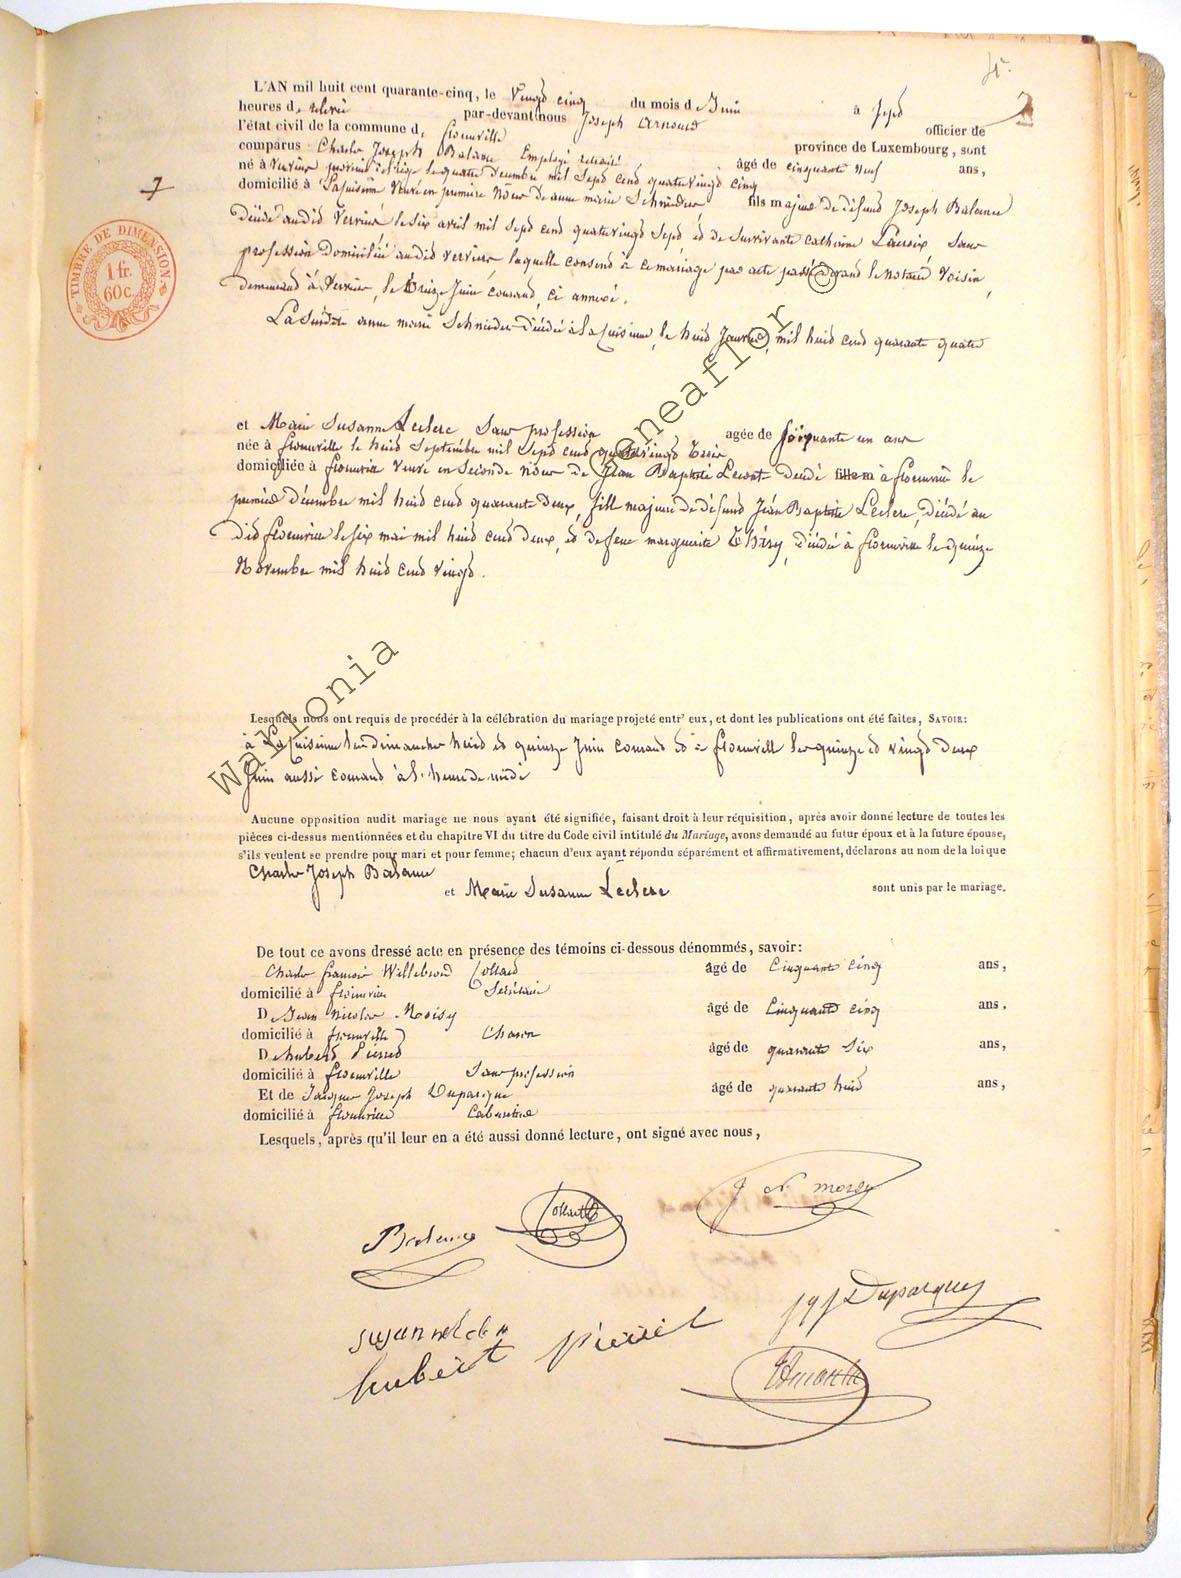 4.
L'AN mil huit cent quarante-cinq, le vingt cinq du mois de Juin à sept
heures du relevée par-devant nous Joseph Arnould officier de
l'état civil de la commune de florenville province de Luxembourg, sont
comparus Charles Joseph Balance Employé retraité âgé de cinquante neuf ans,
né à Verviers province de Liége le quatre décembre mil sept cent quatrevingt cinq
domicilié à Lacuisine veuf en première nôces de anne marie Schnieder fils majeur de défunt Joseph Balance
décédé audit Verviers le six avril mil sept cent quatrevingt sept, et de survivante catherine Lacroix sans
profession domiciliée audit verviers laquelle consent à ce mariage par acte passé devant le notaire Voisin,
demeurant à Verviers, le treize Juin courant, ci annexé.
La susdite anne marie Schnieder décédée à la cuisinne, le huit Janvier, mil huit cent quarante quatre
7
TIMBRE DE DIMENSION
1 fr.
60c.
et Marie Susanne Leclerc sans profession agée de soixante un ans
née à florenville le huit septembre mil sept cent quatrevingt trois
domiciliée à florenville veuve en seconde nôces de Jean Baptiste décédé fille m à florenville le
premier décembre mil huit cent quarante deux, fille majeure de défunt Jean Baptiste Leclerc, décédé au
dit florenville le six mai mil huit cent deux, et de feue marguerite Thiry, décédée à florenville le quinze
Novembre mil huit cent vingt.
Lesquels nous ont requis de procéder à la célébration du mariage projeté entr' eux, et dont les publications ont été faites, SAVOIR:
à Lacuisinne les dimanches huit et quinze Juin courant et à florenville les quinze et vingt deux
Juin aussi courant à l'heure de midi
Aucune opposition audit mariage ne nous ayant été signifiée, faisant droit à leur réquisition, après avoir donné lecture de toutes les
pièces ci-dessus mentionnées et du chapitre VI du titre du Code civil intitulé du Mariage, avons demandé au futur époux et à la future épouse,
s'ils veulent se prendre pour mari et pour femme; chacun d'eux ayant répondu séparément et affirmativement, déclarons au nom de la loi que
Charles Joseph Balance
et Marie Susanne Leclerc sont unis par le mariage.
De tout ce avons dressé acte en présence des témoins ci-dessous dénommés, savoir:
Charles françois Willebrord Collard âgé de Cinquante cinq ans,
domicilié à florenville Secrétaire
De Jean Nicolas Moisy âgé de Cinquante cinq ans,
domicilié à florenville Charon
De hubert Pierret âgé de quarante six ans,
domicilié à florenville Sans profession
Et de Jacques Joseph Duparque âgé de quarante huit ans,
domicilié à florenville Cabaretier
Lesquels, après qu'il leur en a été aussi donné lecture, ont signé avec nous,
Balance
Collard
J N moisy
hubert pierret
Duparque
Wallonia Geneaflor ©